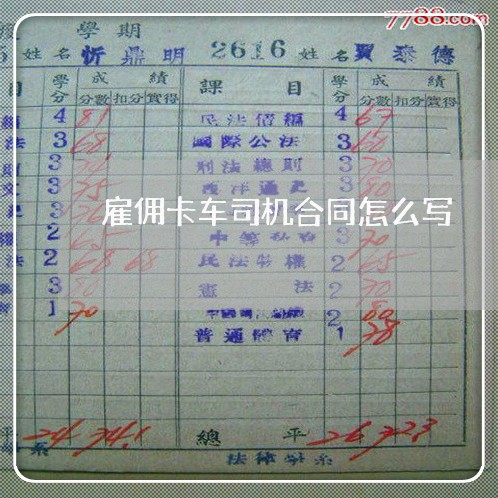 7788.com
學期
姓名 忻鼎明 2616 姓名 賀泰德
目 學分 成績 課目 學分 成績
分數 扣分 實得 分數 扣分 實得
4 81 民法債編 4 67
法 3 68 國際公法 3 60
3 刑法總則 3 70
3 75 西洋通史 3 80
雇佣卡车司机合同怎么写
2 65 3 70
法 2 68 68 民法物權 2 65
3 80 憲法 2 70
1 70 2 80
普通體育 1 78
平 24 74.1 總平 26 72.3
系 法律學系